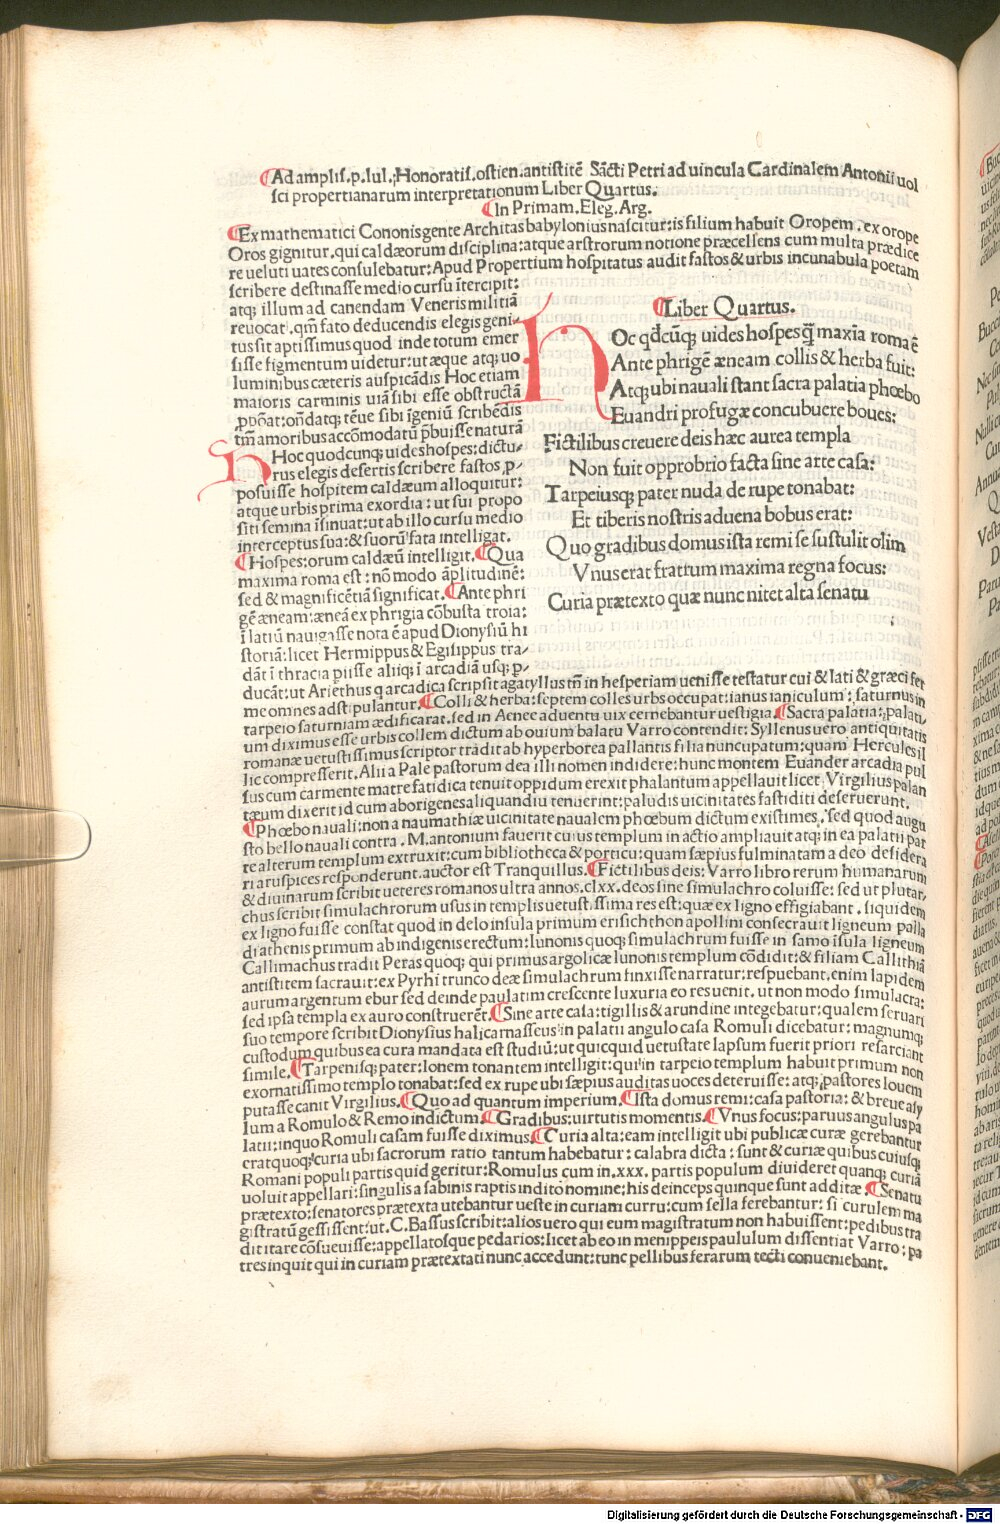 Ad amplis.p.Iul.;Honoratis.ostien.antistitē Sācti Petri ad uincula Cardinalem Antonii uol
sci propertianarum interpretationum Liber Quartus.
In Primam.Eleg.Arg.
Ex mathematici Cononis gente Architas babylonius nascitur:is filium habuit Oropem.ex orope
Oros gignitur,qui caldæorum disciplina:atque arstrorum notione præcellens cum multa prædice
re ueluti uates consulebatur:Apud Propertium hospitatus audit fastos & urbis incunabula poetam
scribere destinasse medio cursu ītercipit:
atq; illum ad canendam Veneris militiā
reuocat,qm̄ fato deducendis elegis geni-
tus sit aptissimus quod inde totum emer
sisse figmentum uidetur:ut æque atq; uo
luminibus cæteris auspicādis Hoc etiam
maioris carminis uiā sibi esse obstructā
ꝓpōat:ōndatq; tēue sibi īgeniū scribēdis
tm̄ amoribus accōmodatū p̄buisse naturā
Hoc quodcunq; uides hospes:dictu-
rus elegis desertis scribere fastos,ꝓ-
posuisse hospitem caldæum alloquitur:
atque urbis prima exordia:ut sui propo
siti semina īsinuat:ut ab illo cursu medio
interceptus sua:& suorū fata intelligat.
Hospes:orum caldæū intelligit.Qua
maxima roma est:nō modo āplitudinē:
sed & magnificētiā significat.Ante phri
gē æneam:æneā ex phrigia cōbusta troia:
ī latiū nauigasse nota ē apud Dionysiū hi
storiā:licet Hermippus & Egisippus tra-
dāt ī thracia piisse aliiq; ī arcadiā usq; ꝑ-
ducāt:ut Ariethus q arcadica scripsit agatyllus tm̄ in hesperiam uenisse testatur cui & lati & græci fer
me omnes adstipulantur.Colli & herba:septem colles urbs occupat:ianus ianiculum:saturnus in
tarpeio saturniam ædificarat.sed in Aenee aduentu uix cernebantur uestigia.Sacra palatia:palati-
um diximus esse urbis collem dictum ab ouium balatu Varro contendit:Syllenus uero antiquitatis
romanæ uetustissimus scriptor tradit ab hyperborea pallantis filia nuncupatum:quam Hercules il
lic compresserit.Alii a Pale pastorum dea illi nomen indidere:hunc montem Euander arcadia pul
sus cum carmente matre fatidica tenuit oppidum erexit phalantum appellauit licet Virgilius palan
tæum dixerit id cum aborigenes aliquandiu tenuerint:paludis uicinitates fastiditi deseruerunt.
Phœbo nauali:non a naumathiæ uicinitate naualem phœbum dictum existimes,sed quod augu
sto bello nauali contra.M.antonium fauerit cuius templum in actio ampliauit atq; in ea palatii par
te alterum templum extruxit:cum bibliotheca & porticu:quam sæpius fulminatam a deo desidera
ri aruspices responderunt.auctor est Tranquillus.Fictilibus deis:Varro libro rerum humanarum
& diuinarum scribit ueteres romanos ultra annos.clxx.deos sine simulachro coluisse:sed ut plutar-
chus scribit simulachrorum usus in templis uetustissima res est:quæ ex ligno effigiabant.siquidem
ex ligno fuisse constat quod in delo insula primum erisichthon apollini consecrauit ligneum palla
di athenis primum ab indigenis erectum:Iunonis quoq; simulachrum fuisse in samo īsula ligneum
Callimachus tradit Peras quoq; qui primus argolicæ Iunonis templum cōdidit:& filiam Callithiā
antistitem sacrauit:ex Pyrhi trunco deæ simulachrum finxisse narratur:respuebant.enim lapidem
aurum argentum ebur sed deinde paulatim crescente luxuria eo resuenit.ut non modo simulacra:
sed ipsa templa ex auro construerēt.Sine arte casa:tigillis & arundine integebatur:qualem seruari
suo tempore scribit Dionysius halicarnasseus in palatii angulo casa Romuli dicebatur:magnumq;
custodum quibus ea cura mandata est studiū:ut quicquid uetustate lapsum fuerit priori resarciant
simile.Tarpenisq; pater:Ionem tonantem intelligit:qui in tarpeio templum habuit primum non
exornatissimo templo tonabat:sed ex rupe ubi sæpius auditas uoces deteruisse:atq; pastores Iouem
putasse canit Virgilius.Quo ad quantum imperium.Ista domus remi:casa pastoria:& breue asy
lum a Romulo & Remo indictum.Gradibus:uirtutis momentis.Vnus focus:paruus angulus pa
latii:inquo Romuli casam fuisse diximus.Curia alta:eam intelligit ubi publicæ curæ gerebantur
erat quoq; curia ubi sacrorum ratio tantum habebatur:calabra dicta:sunt & curiæ quibus cuiusq;
Romani populi partis quid geritur:Romulus cum in.xxx.partis populum diuideret quanq; curiā
uoluit appellari:singulis a sabinis raptis indito nomine:his deinceps quinque sunt additæ.Senatu
prætexto:senatores prætexta utebantur ueste in curiam curru:cum sella ferebantur:si curulem ma
gistratū gessissent:ut.C.Bassus scribit:alios uero qui eum magistratum non habuissent:pedibus tra
dit itare cōsueuisse:appellatosque pedarios:licet ab eo in menippeis paululum dissentiat Varro:pa
tres inquit qui in curiam prætextati nunc accedunt:tunc pellibus ferarum tecti conueniebant.
Liber Quartus.
HOc qdcūq; uides hospes q̄ maxīa roma ē
Ante phrigē æneam collis & herba fuit:
Atq; ubi nauali stant sacra palatia phœbo
Euandri profugæ concubuere boues:
Fictilibus creuere deis hæc aurea templa
Non fuit opprobrio facta sine arte casa:
Tarpeiusq; pater nuda de rupe tonabat:
Et tiberis nostris aduena bobus erat:
Quo gradibus domus ista remi se sustulit olim
Vnus erat fratrum maxima regna focus:
Curia prætexto quæ nunc nitet alta senatu
Digitalisierung gefördert durch die Deutsche Forschungsgemeinschaft - DFG